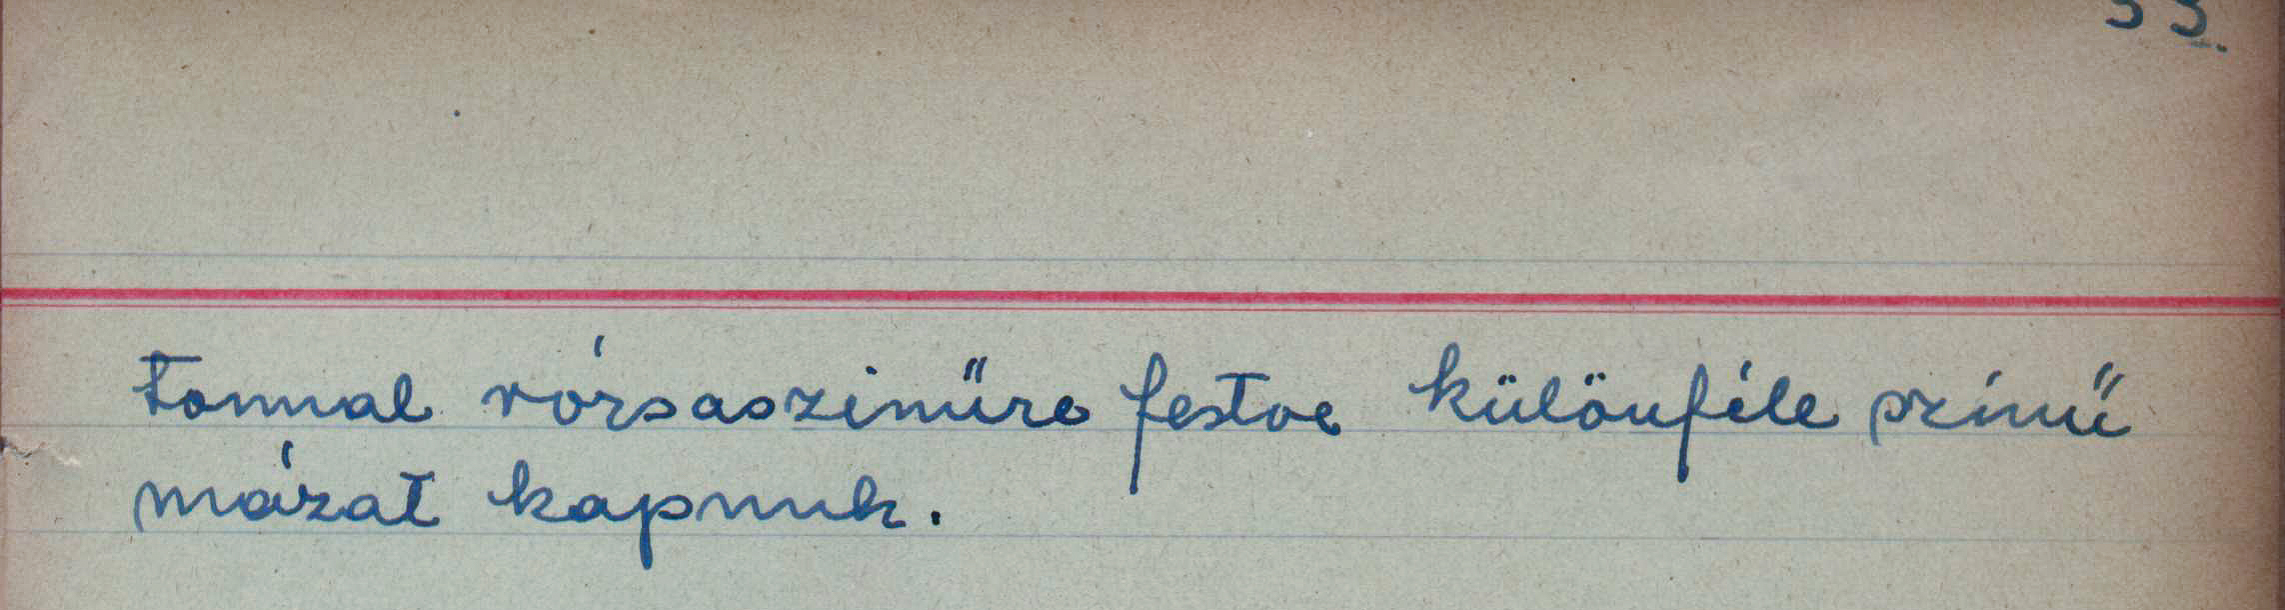 33.
tonnal rózsaszinűre festve különféle színű
mázat kapnuk.